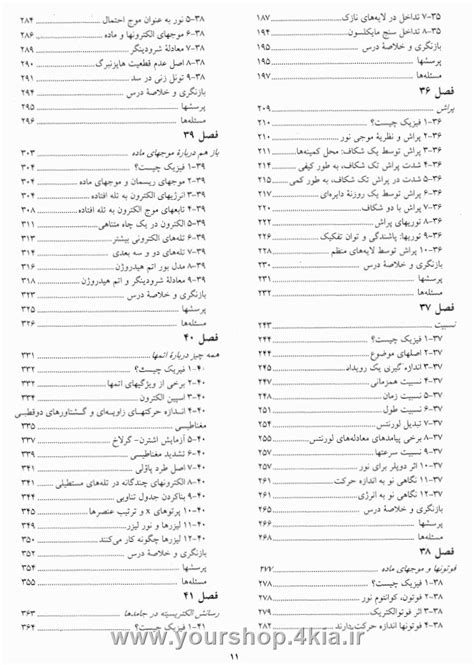 ۷-۳۵ تداخل در لایه‌های نازک ۱۸۷
۸-۳۵ تداخل سنج مایکلسون ۱۹۵
بازنگری و خلاصهٔ درس ۱۹۵
پرسشها ۱۹۵
مسئله‌ها ۱۹۷
فصل ۳۶
پراش ۲۰۹
۱-۳۶ فیزیک چیست؟ ۲۱۰
۲-۳۶ پراش و نظریهٔ موجی نور ۲۱۰
۳-۳۶ پراش توسط یک شکاف: محل کمینه‌ها ۲۱۱
۴-۳۶ شدت پراش تک شکاف، به طور کیفی ۲۱۴
۵-۳۶ شدت در پراش تک شکاف، به طور کمی
۶-۳۶ پراش توسط یک روزنهٔ دایره‌ای ۲۱۷
۷-۳۶ پراش با دو شکاف
۸-۳۶ توریهای پراش ۲۲۲
۹-۳۶ توریها: پاشندگی و توان تفکیک ۲۲۶
۱۰-۳۶ پراش توسط لایه‌های منظم ۲۲۸
بازنگری و خلاصهٔ درس ۲۳۰
پرسشها ۲۳۱
مسئله‌ها ۲۳۲
فصل ۳۷
نسبیت ۲۴۳
۱-۳۷ فیزیک چیست؟ ۲۴۴
۲-۳۷ اصلهای موضوع ۲۴۴
۳-۳۷ اندازه گیری یک رویداد
۴-۳۷ نسبیت همزمانی ۲۴۷
۵-۳۷ نسبیت زمان ۲۴۸
۶-۳۷ نسبیت طول ۲۵۱
۷-۳۷ تبدیل لورنتس
۸-۳۷ برخی پیامدهای معادله‌های لورنتس ۲۵۵
۹-۳۷ نسبیت سرعتها
۱۰-۳۷ اثر دوپلر برای نور
۱۱-۳۷ نگاهی نو به اندازه حرکت ۲۶۱
۱۲-۳۷ نگاهی نو به انرژی ۲۶۱
بازنگری و خلاصهٔ درس ۲۶۵
پرسشها ۲۶۶
مسئله‌ها ۲۶۸
فصل ۳۸
فوتونها و موجهای ماده ۲۷۷
۱-۳۸ فیزیک چیست؟ ۲۷۸
۲-۳۸ فوتون، کوانتوم نور ۲۷۸
۳-۳۸ اثر فوتوالکتریک ۲۷۹
۴-۳۸ فوتونها اندازه حرکت دارند
۵-۳۸ نور به عنوان موج احتمال ۲۸۴
۶-۳۸ موجهای الکترونها و ماده ۲۸۶
۷-۳۸ معادلهٔ شرودینگر ۲۸۹
۸-۳۸ اصل عدم قطعیت هایزنبرگ ۲۹۰
۹-۳۸ تونل زنی در سد ۲۹۱
بازنگری و خلاصهٔ درس ۲۹۴
پرسشها ۲۹۵
مسئله‌ها ۲۹۶
فصل ۳۹
باز هم دربارهٔ موجهای ماده ۳۰۳
۱-۳۹ فیزیک چیست؟ ۳۰۴
۲-۳۹ موجهای ریسمان و موجهای ماده ۳۰۴
۳-۳۹ انرژیهای الکترون به تله افتاده ۳۰۴
۴-۳۹ تابعهای موج الکترون به تله افتاده ۳۰۸
۵-۳۹ الکترون در یک چاه متناهی ۳۱۱
۶-۳۹ تله‌های الکترونی بیشتر ۳۱۳
۷-۳۹ تله‌های دو و سه بعدی ۳۱۴
۸-۳۹ مدل بور اتم هیدروژن ۳۱۶
۹-۳۹ معادلهٔ شرودینگر و اتم هیدروژن ۳۱۸
بازنگری و خلاصهٔ درس ۳۲۳
پرسشها
مسئله‌ها ۳۲۶
فصل ۴۰
همه چیز دربارهٔ اتمها ۳۳۱
۱-۴۰ فیزیک چیست؟ ۳۳۲
۲-۴۰ برخی از ویژگیهای اتمها
۳-۴۰ اسپین الکترون
۴-۴۰ اندازه حرکتهای زاویه‌ای و گشتاورهای دوقطبی
مغناطیسی ۳۳۵
۵-۴۰ آزمایش اشترن-گرلاخ ۳۳۷
۶-۴۰ تشدید مغناطیسی
۷-۴۰ اصل طرد پاؤلی ۳۴۱
۸-۴۰ الکترونهای چندگانه در تله‌های مستطیلی ۳۴۱
۹-۴۰ بناکردن جدول تناوبی
۱۰-۴۰ پرتوهای x و ترتیب عنصرها ۳۴۵
۱۱-۴۰ لیزرها و نور لیزر ۳۴۹
۱۲-۴۰ لیزرها چگونه کار می‌کنند ۳۵۰
بازنگری و خلاصهٔ درس ۳۵۲
پرسشها ۳۵۴
مسئله‌ها ۳۵۵
فصل ۴۱
رسانش الکتریسیته در جامدها ۳۶۳
۱-۴۱ فیزیک چیست؟ ۳۶۴
www.yourshop.4kia.ir
۱۱